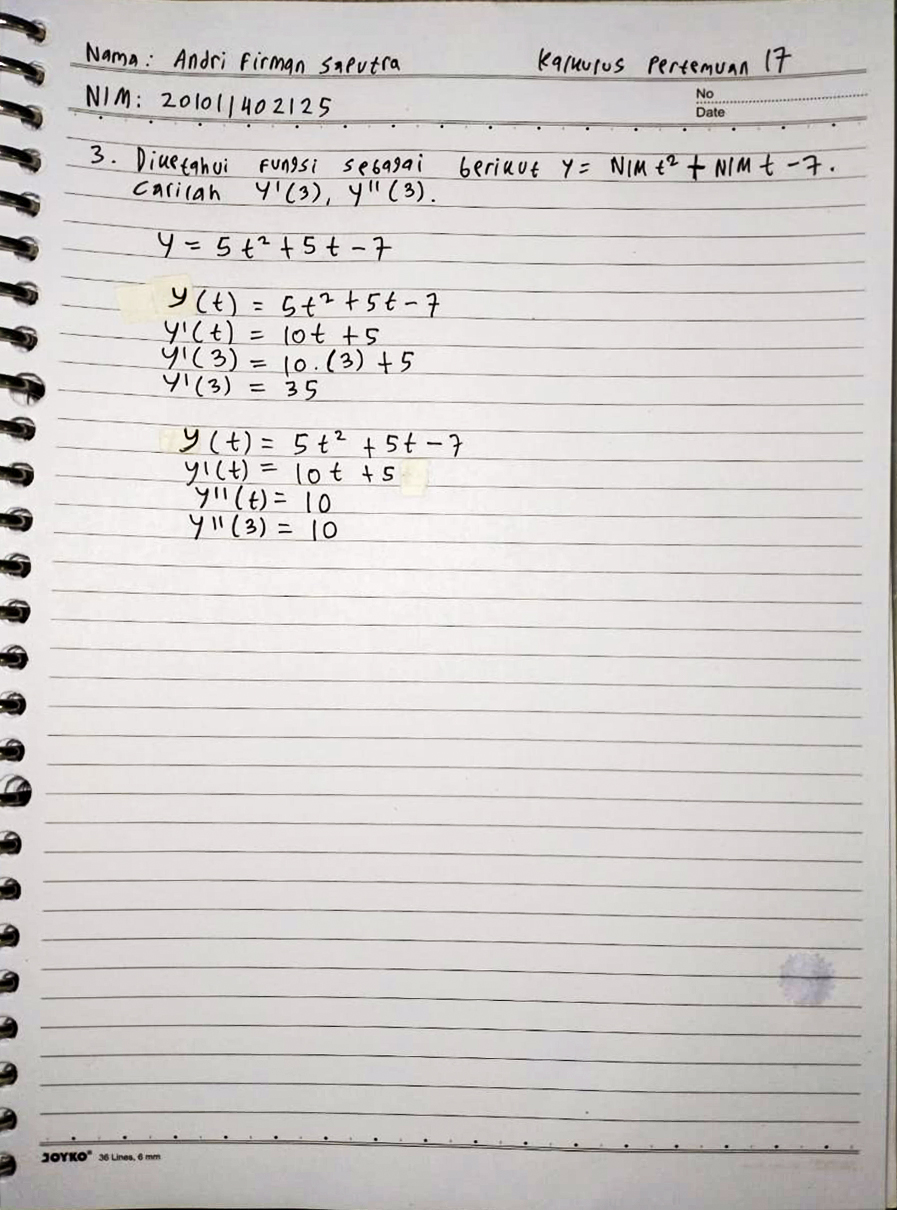 Nama : Andri Firman Saputra Kalkulus Pertemuan 17
NIM : 201011402125
No
Date
3. Diketahui Fungsi sebagai berikut y = NIM t² + NIM t - 7.
Carilah y'(3), y''(3).
y = 5t² + 5t - 7
y(t) = 5t² + 5t - 7
y'(t) = 10t + 5
y'(3) = 10.(3) + 5
y'(3) = 35
y(t) = 5t² + 5t - 7
y'(t) = 10t + 5
y''(t) = 10
y''(3) = 10
JOYKO® 36 Lines, 6 mm